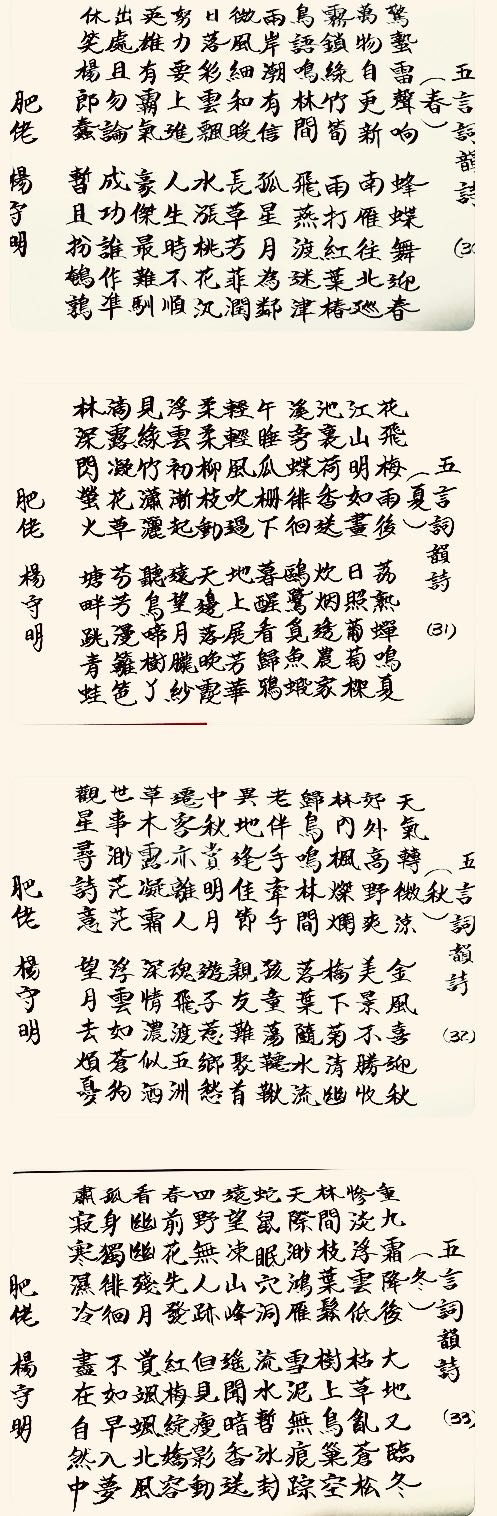 五言詞韻詩 (30
（春）
驚蟄雷聲响 蜂蝶舞迎春
萬物自更新 南雁往北廻
霧鎖綠竹筍 雨打紅葉椿
鳥語鳴林間 飛燕渡迷津
兩岸潮有信 孤星月為鄰
微風細和晚 長草芳菲潤
日落彩雲飄 水漲桃花沉
努力要上進 人生時不順
英雄有霸氣 豪傑最難馴
出處且勿論 成功誰作準
休笑楊郎蠢 暫且扮鵪鶉
肥佬 楊守明
五言詞韻詩 (31)
（夏）
花飛梅雨後 荔熟蟬鳴夏
江山明如畫 日照葡萄樑
池裏荷香送 炊烟透農家
溪旁蝶徘徊 鷗鷺覓魚蝦
午睡瓜棚下 暮醒看歸鴉
輕輕風吹過 地上展芳華
柔柔柳枝動 天邊落晚霞
浮雲初漸起 遠望月朧紗
見綠竹瀟灑 聽鳥啼樹丫
滴露凝花草 芬芳漫籬笆
林深閃螢火 塘畔跳青蛙
肥佬 楊守明
五言詞韻詩 (32)
（秋）
天氣轉微涼 金風喜迎秋
郊外高野爽 美景不勝收
林內楓燦爛 橋下菊清幽
歸鳥鳴林間 落葉隨水流
老伴手牽手 孩童蕩鞦韆
異地逢佳節 親友難聚首
中秋賞明月 遊子惹鄉愁
遷客亦離人 魂飛渡五洲
草木露凝霜 深情濃似酒
世事渺茫茫 浮雲如蒼狗
觀星尋詩意 望月去煩憂
肥佬 楊守明
五言詞韻詩 (33)
（冬）
重九霜降後 大地又臨冬
慘淡浮雲低 枯草亂蒼松
林間枝葉鬆 樹上鳥巢空
天際渺鴻雁 雪泥無痕踪
蛇鼠眠穴洞 流水暫冰封
遠望凍山峰 遙聞暗香送
四野無人跡 但見瘦影動
春前花先發 紅梅綻嬌容
看幽幽殘月 覺颯颯北風
孤身獨徘徊 不如早入夢
肅寂寒濕冷 盡在自然中
肥佬 楊守明